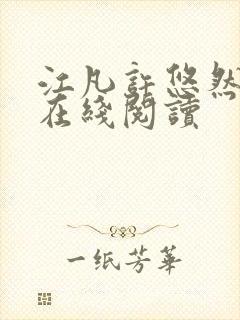 江凡許悠然
在綫閱讀
一纸芳華